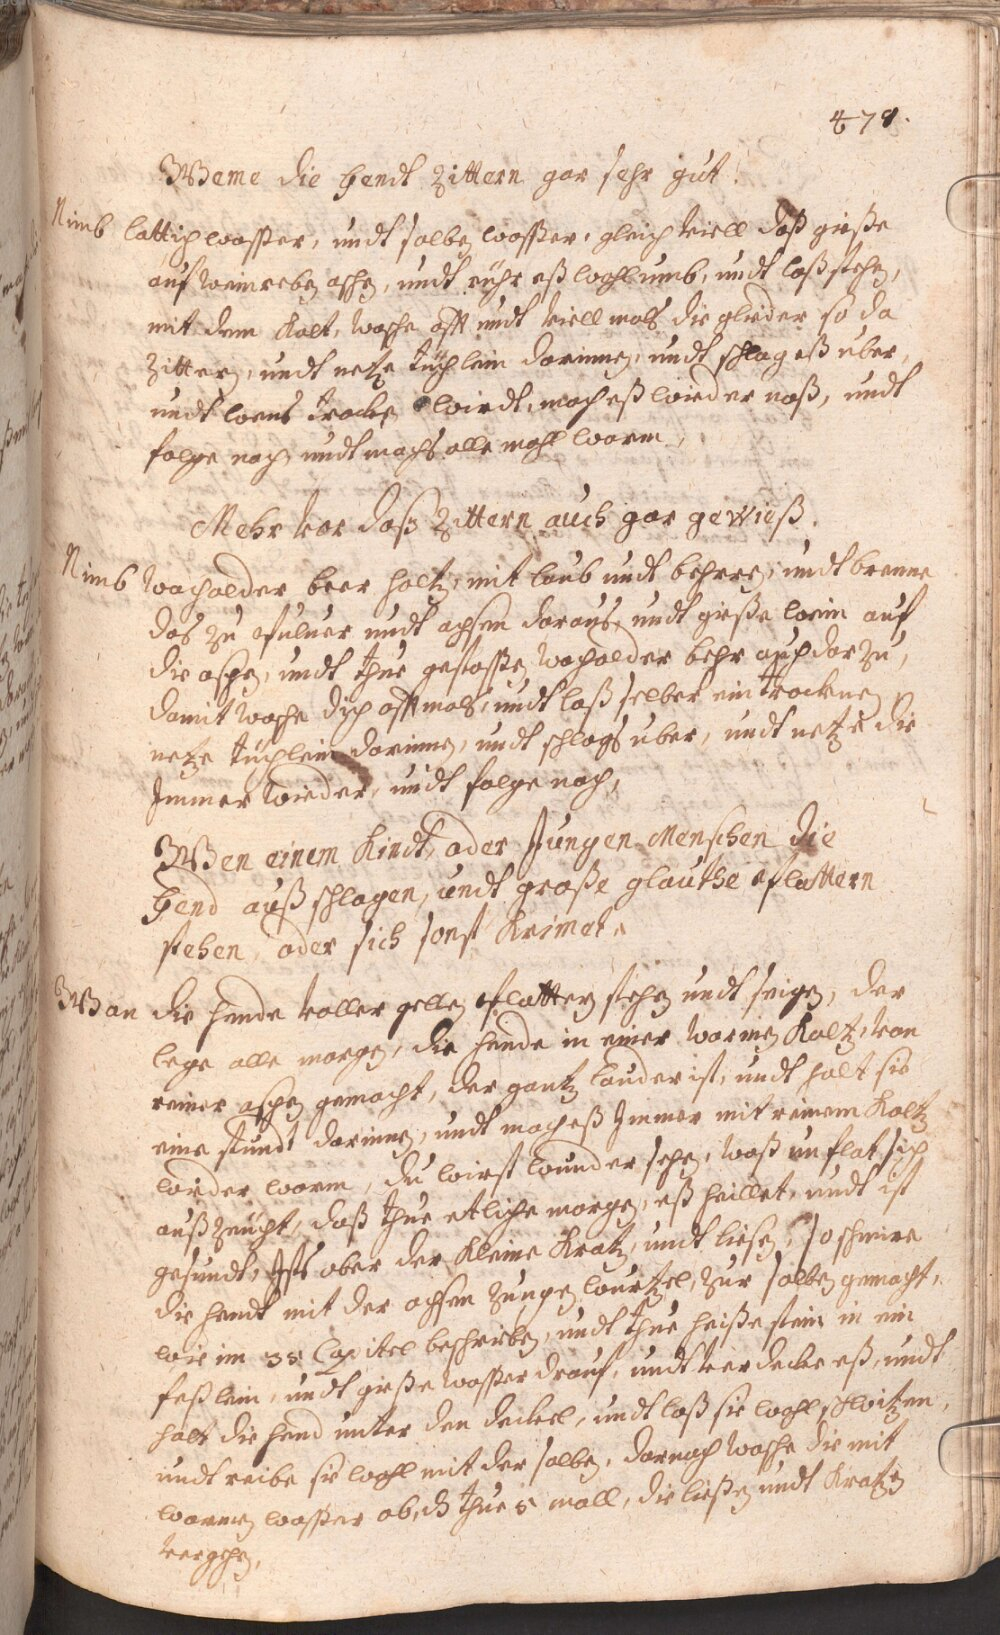 478.
Weme die hendt Zittern gar sehr gut.
Nimb lattich wasser, undt salben wasser, gleich viell daß gieße
auf weinreben aschen, undt rühr eß wohl umb, undt laß stehen,
mit dem kalt, wasche offt undt viell mals die glieder so da
Zittern, undt netze tüchlein darinnen, undt schlag eß uber,
undt wens trocken wirdt, mach eß wieder naß, undt
folge nach undt machs alle mahl warm,
Mehr vor daß Zittern auch gar gewieß.
Nimb wacholder beer holtz, mit laub undt behren, undt brenne
das zu pulver undt aschen daraus, undt gieße wein auf
die aschen, undt thue gestossen wacholder behr auch darzu,
damit wasche dich offtmals, undt laß selber ein trocknen
netze tüchlein darinnen, undt schlags uber, undt netze die
Immer wieder, undt folge nach,
Wen einem Kindt, oder Jungen Menschen die
hend auß schlagen, undt große glauthe eplattern
stehen, oder sich sonst krimet,
Wan die hende voller gellen eplattern stehen undt seigen, der
lege alle morgen, die hende in einer warmen kaltz, von
reiner aschen gemacht, der gantz lauder ist, undt halt sie
eine stundt darinnen, undt mach eß Immer mit reinem kaltz
wieder warm, du wirst wunder sehen, waß unflat sich
auß zeucht, daß thue etliche morgen, eß heillet, undt ist
gesundt, Ists aber der kleine kratz, undt liesen, so schmire
die hendt mit der ochsen zungen wurtzel, zur salben gemacht,
wie im 38 Capitel beschrieben, undt thue heiße stein in ein
feßlein, undt gieße wasser drauf, undt verdecke eß, undt
halt die hend unter den deckel, undt laß sie wohl schwitzen,
undt reibe sie wohl mit der salben, darnach wasche die mit
warmen wasser ab, dß thue 5 mall, die ließen undt kratzen
vergehen,